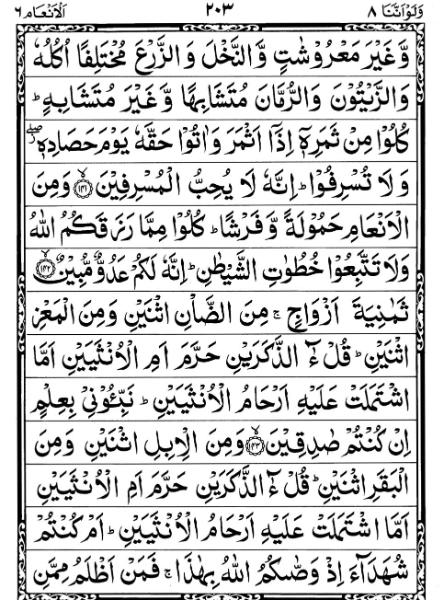 وَلَوْ اَنَّنَا ٨ ٢٠٣ اَلْاَنْعَام ٦
وَّ غَيْرَ مَعْرُوْشٰتٍ وَّ النَّخْلَ وَ الزَّرْعَ مُخْتَلِفًا اُكُلُهٗ
وَ الزَّيْتُوْنَ وَ الرُّمَّانَ مُتَشَابِهًا وَّ غَيْرَ مُتَشَابِهٍ ؕ
كُلُوْا مِنْ ثَمَرِهٖۤ اِذَاۤ اَثْمَرَ وَ اٰتُوْا حَقَّهٗ يَوْمَ حَصَادِهٖ ۖ
وَ لَا تُسْرِفُوْا ؕ اِنَّهٗ لَا يُحِبُّ الْمُسْرِفِيْنَ ﴿۱۴۱﴾ وَ مِنَ
الْاَنْعَامِ حَمُوْلَةً وَّ فَرْشًا ؕ كُلُوْا مِمَّا رَزَقَكُمُ اللّٰهُ
وَ لَا تَتَّبِعُوْا خُطُوٰتِ الشَّيْطٰنِ ؕ اِنَّهٗ لَكُمْ عَدُوٌّ مُّبِيْنٌ ﴿۱۴۲﴾
ثَمٰنِيَةَ اَزْوَاجٍ ۚ مِنَ الضَّاْنِ اثْنَيْنِ وَ مِنَ الْمَعْزِ
اثْنَيْنِ ؕ قُلْ ءٰٓالذَّكَرَيْنِ حَرَّمَ اَمِ الْاُنْثَيَيْنِ اَمَّا
اشْتَمَلَتْ عَلَيْهِ اَرْحَامُ الْاُنْثَيَيْنِ ؕ نَبِّـُٔوْنِيْ بِعِلْمٍ
اِنْ كُنْتُمْ صٰدِقِيْنَ ﴿۱۴۳﴾ وَ مِنَ الْاِبِلِ اثْنَيْنِ وَ مِنَ
الْبَقَرِ اثْنَيْنِ ؕ قُلْ ءٰٓالذَّكَرَيْنِ حَرَّمَ اَمِ الْاُنْثَيَيْنِ
اَمَّا اشْتَمَلَتْ عَلَيْهِ اَرْحَامُ الْاُنْثَيَيْنِ ؕ اَمْ كُنْتُمْ
شُهَدَآءَ اِذْ وَصّٰىكُمُ اللّٰهُ بِهٰذَا ۚ فَمَنْ اَظْلَمُ مِمَّنِ